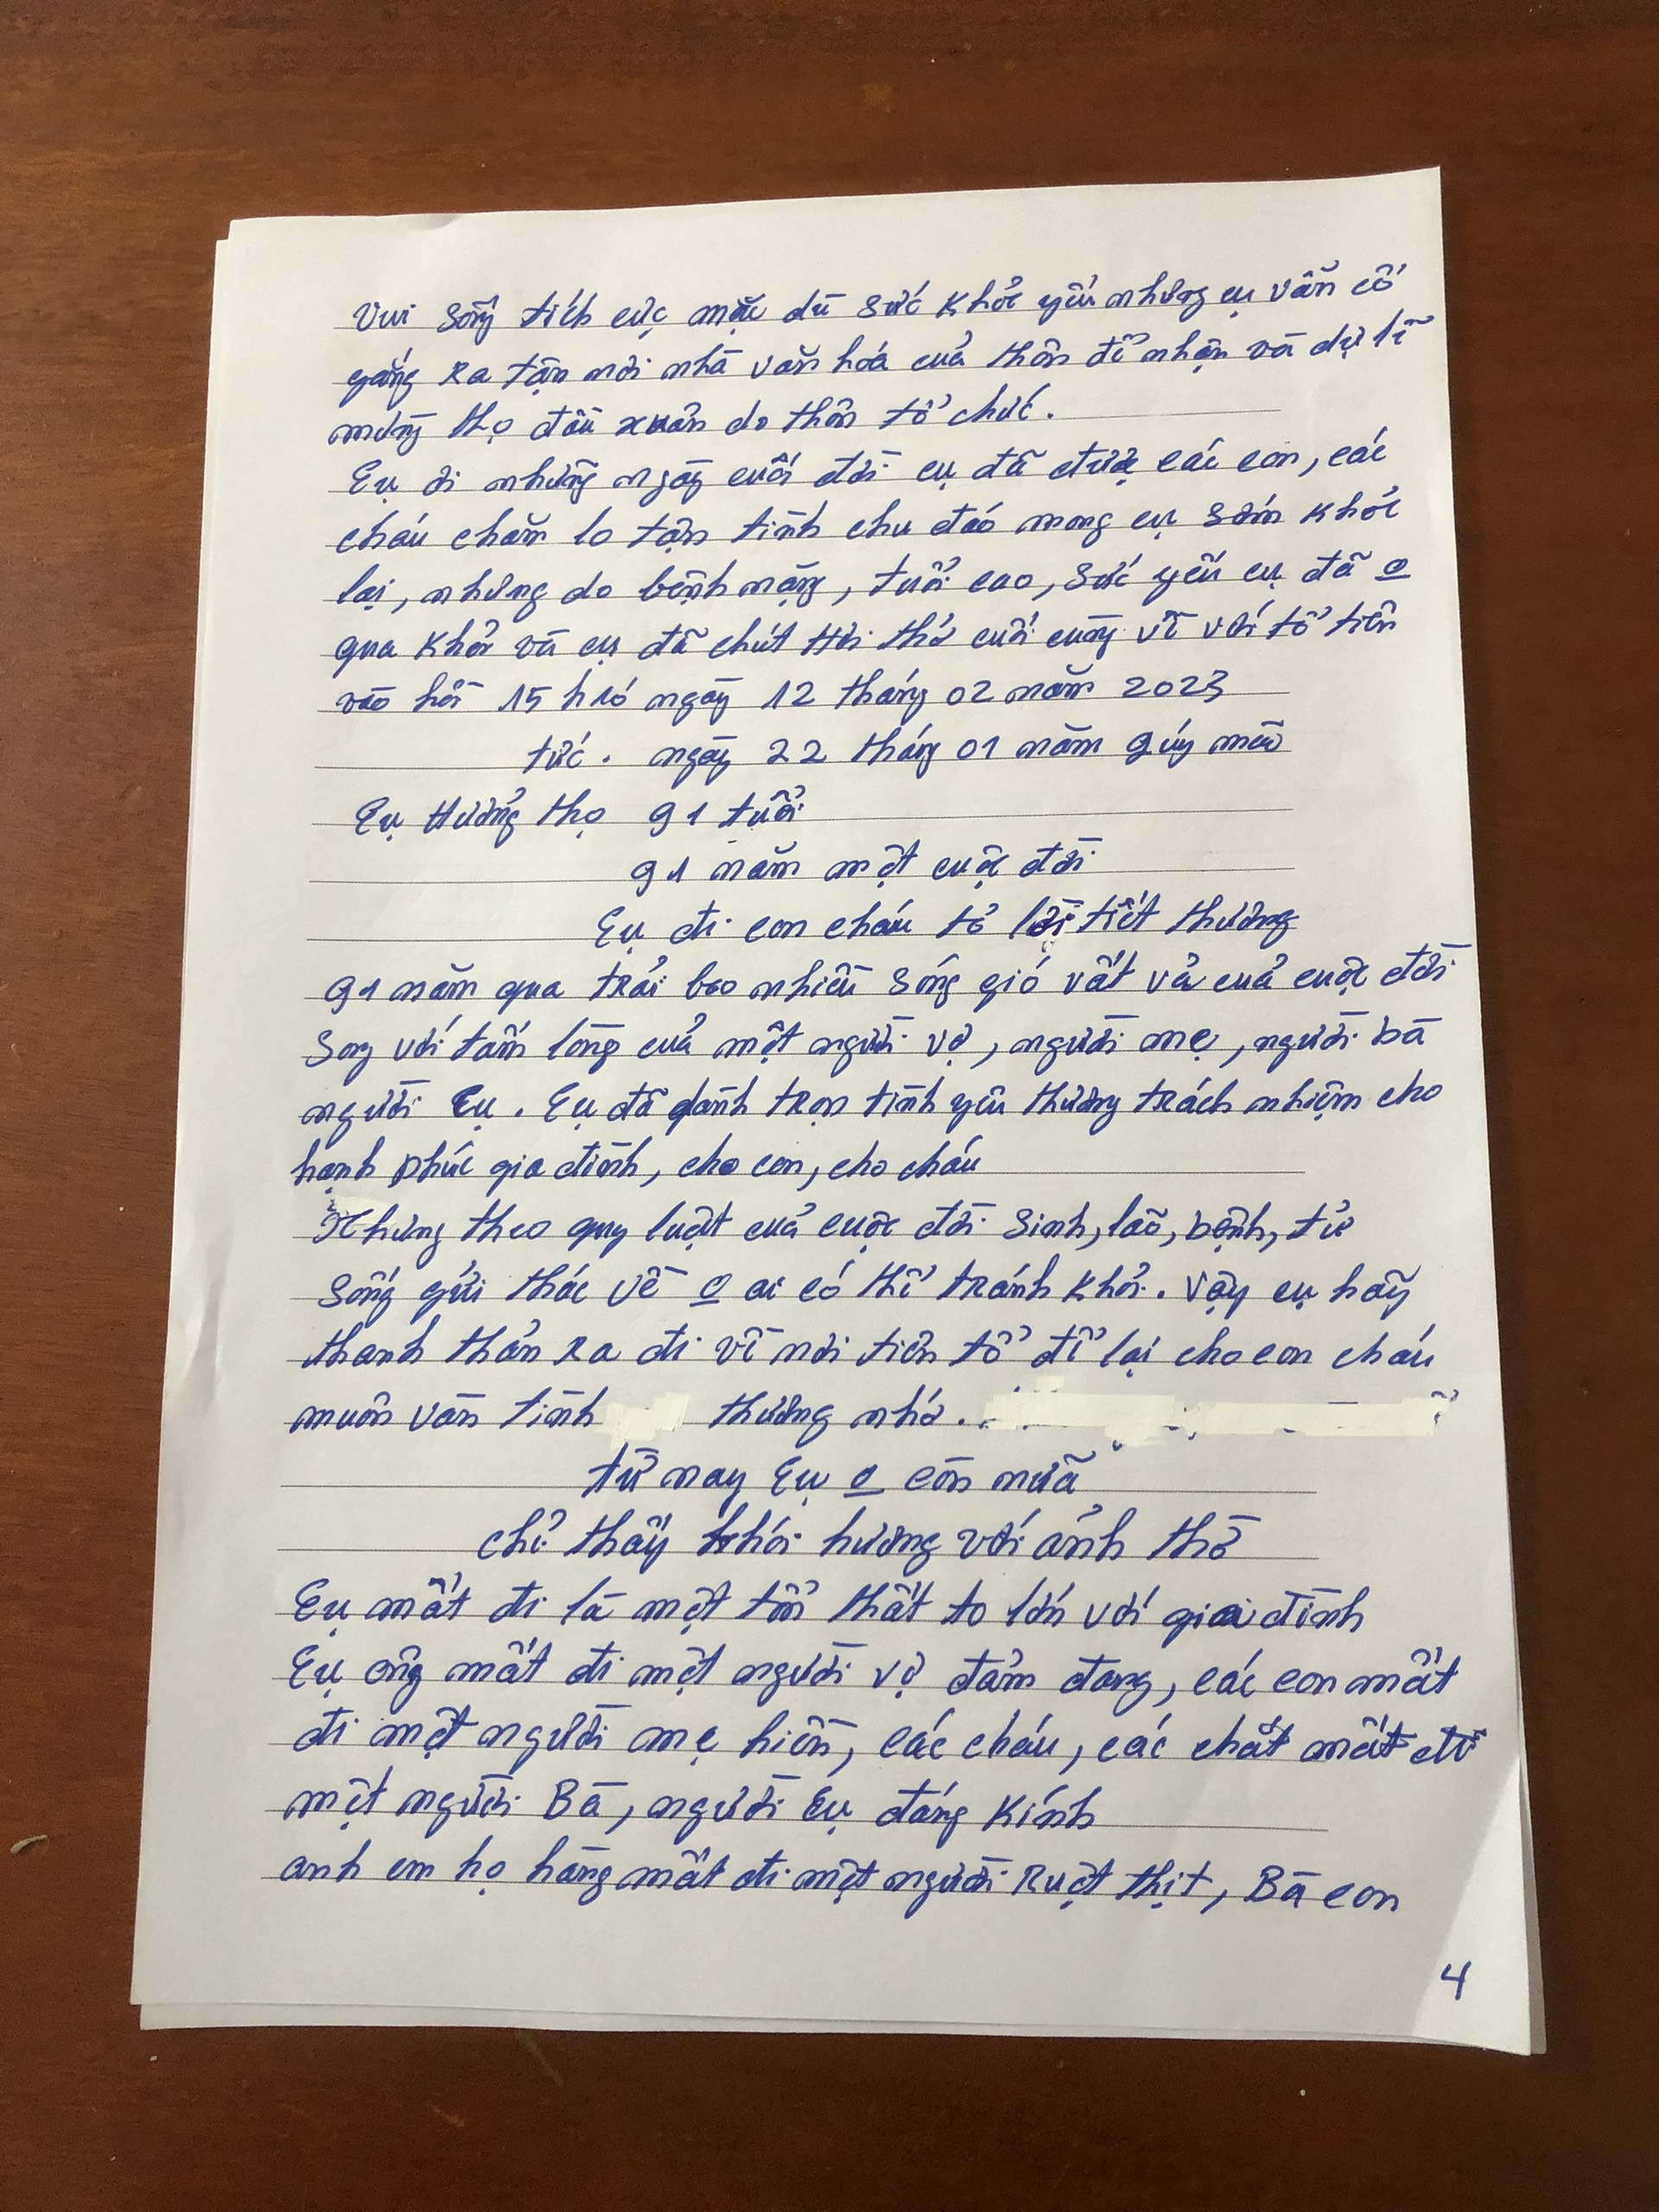 Vui sống tích cực mặc dù sức khỏe yếu nhưng cụ vẫn cố
gắng ra tận nơi nhà văn hóa của thôn để nhận và dự lễ
mừng thọ đầu xuân do thôn tổ chức.
Cụ ơi những ngày cuối đời cụ đã được các con, các
cháu chăm lo tận tình chu đáo mong cụ sớm khỏe
lại, nhưng do bệnh nặng, tuổi cao, sức yếu cụ đã o
qua khỏi và cụ đã chút hơi thở cuối cùng về với tổ tiên
vào hồi 15 h 10 ngày 12 tháng 02 năm 2023
tức. ngày 22 tháng 01 năm Qúy mão
Cụ hưởng thọ 91 tuổi
91 năm một cuộc đời
Cụ đi con cháu tỏ lời tiết thương
91 năm qua trải bao nhiêu sóng gió vất vả của cuộc đời
Song với tấm lòng của một người vợ, người mẹ, người bà
người Cụ. Cụ đã dành trọn tình yêu thương trách nhiệm cho
hạnh phúc gia đình, cho con, cho cháu
Nhưng theo quy luật của cuộc đời sinh, lão, bệnh, tử
Sống gửi thác về o ai có thể tránh khỏi. Vậy cụ hãy
thanh thản ra đi về nơi tiên tổ để lại cho con cháu
muôn vàn tình thương nhớ.
từ nay Cụ o còn nữa
chỉ thấy khói hương với ảnh thờ
Cụ mất đi là một tổn thất to lớn với gia đình
Cụ ông mất đi một người vợ đảm đang, các con mất
đi một người mẹ hiền, các cháu, các chắt mất đi
một người Bà, người Cụ đáng kính
anh em họ hàng mất đi một người Ruột thịt, Bà con
4